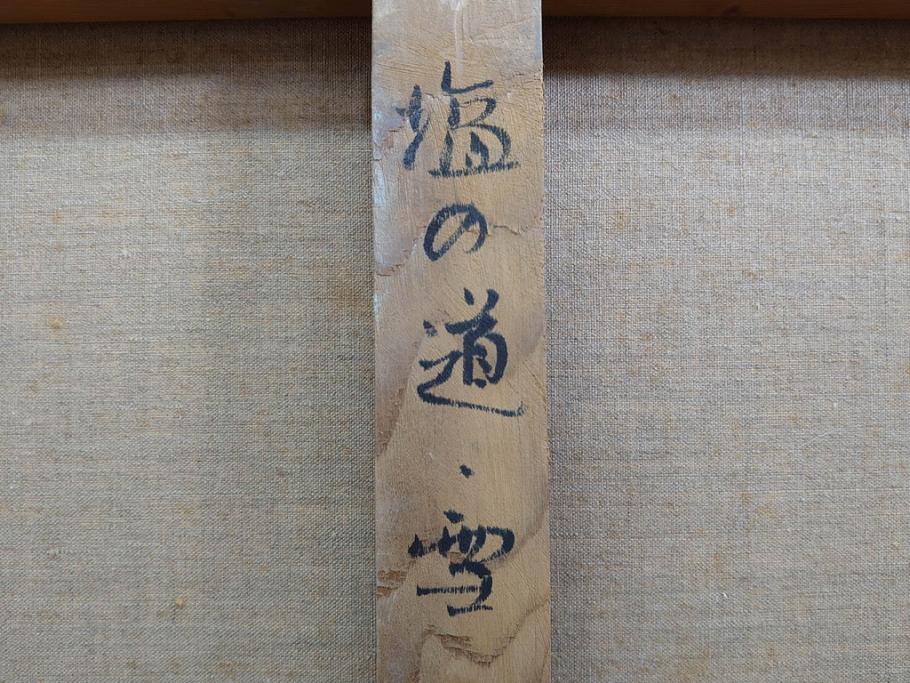 塩の道・雪